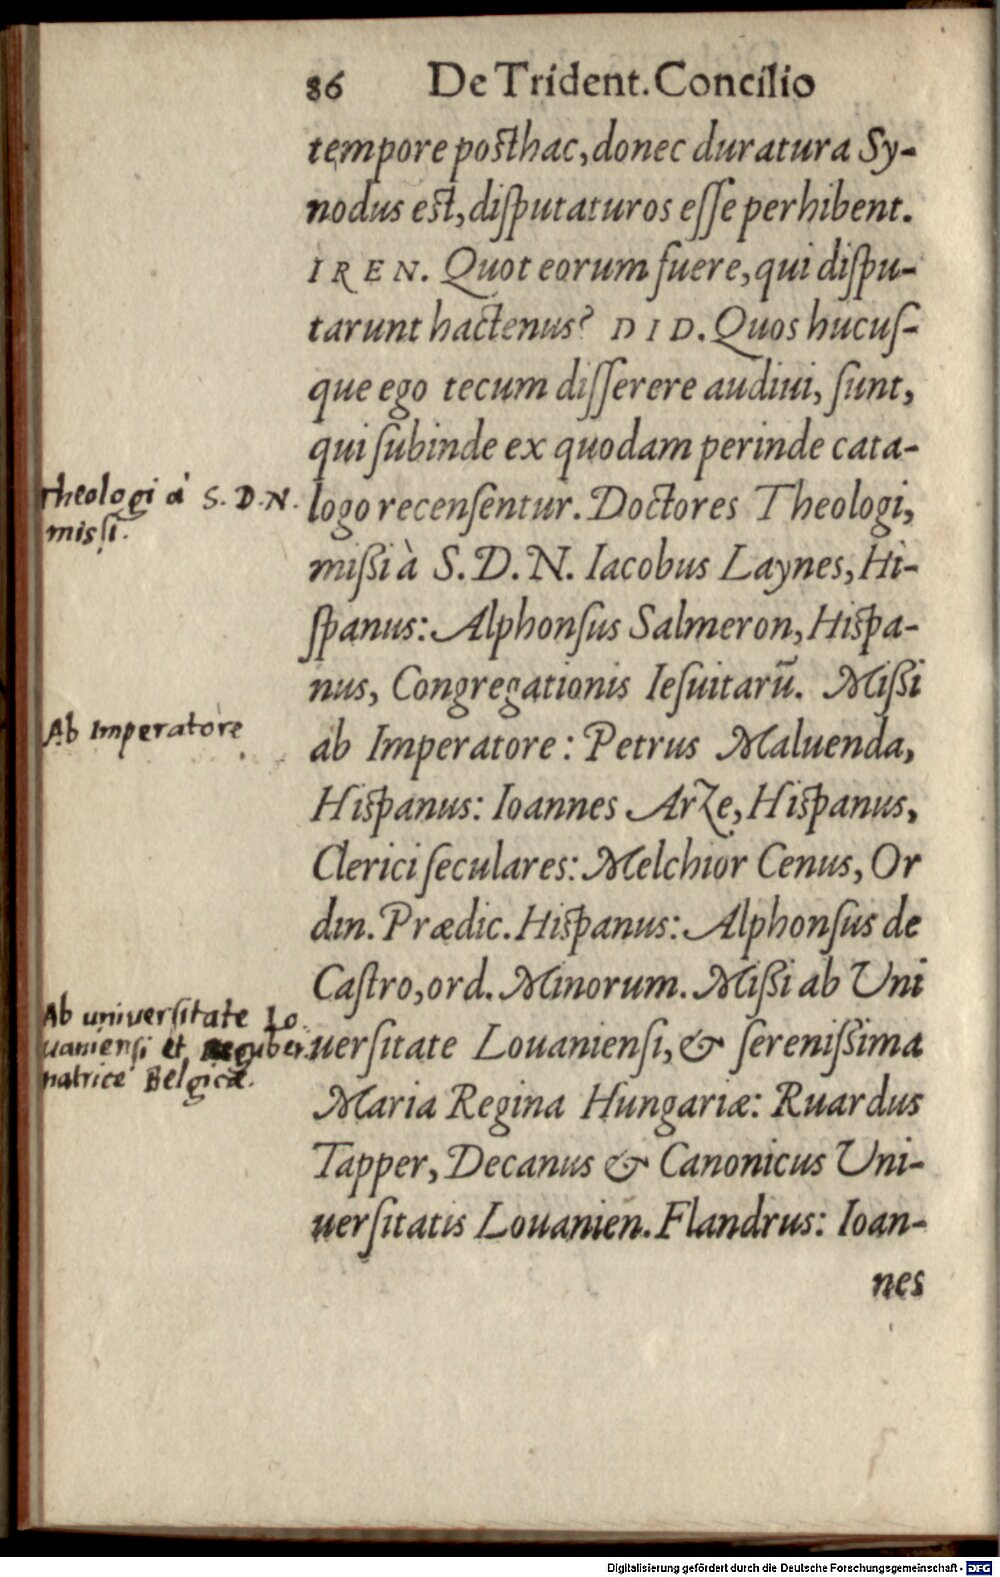 86 De Trident. Concilio
tempore posthac, donec duratura Sy-
nodus est, diſputaturos eſſe perhibent.
IREN. Quot eorum fuere, qui diſpu-
tarunt hactenus? DID. Quos hucuſ-
que ego tecum diſſerere audiui, ſunt,
qui ſubinde ex quodam perinde cata-
logo recenſentur. Doctores Theologi,
miſsi à S. D. N. Iacobus Laynes, Hi-
ſpanus: Alphonſus Salmeron, Hiſpa-
nus, Congregationis Ieſuitarū. Miſsi
ab Imperatore: Petrus Maluenda,
Hiſpanus: Ioannes Arze, Hiſpanus,
Clerici ſeculares: Melchior Cenus, Or
din. Prædic. Hiſpanus: Alphonſus de
Caſtro, ord. Minorum. Miſsi ab Uni
uerſitate Louanienſi, & ſereniſsima
Maria Regina Hungariæ: Ruardus
Tapper, Decanus & Canonicus Uni-
uerſitatis Louanien. Flandrus: Ioan-
nes
Theologi à S. D. N.
misſi.
Ab Imperatore
Ab univerſitate Lo
uanienſi et guber
natrice Belgicæ.
Digitalisierung gefördert durch die Deutsche Forschungsgemeinschaft - DFG